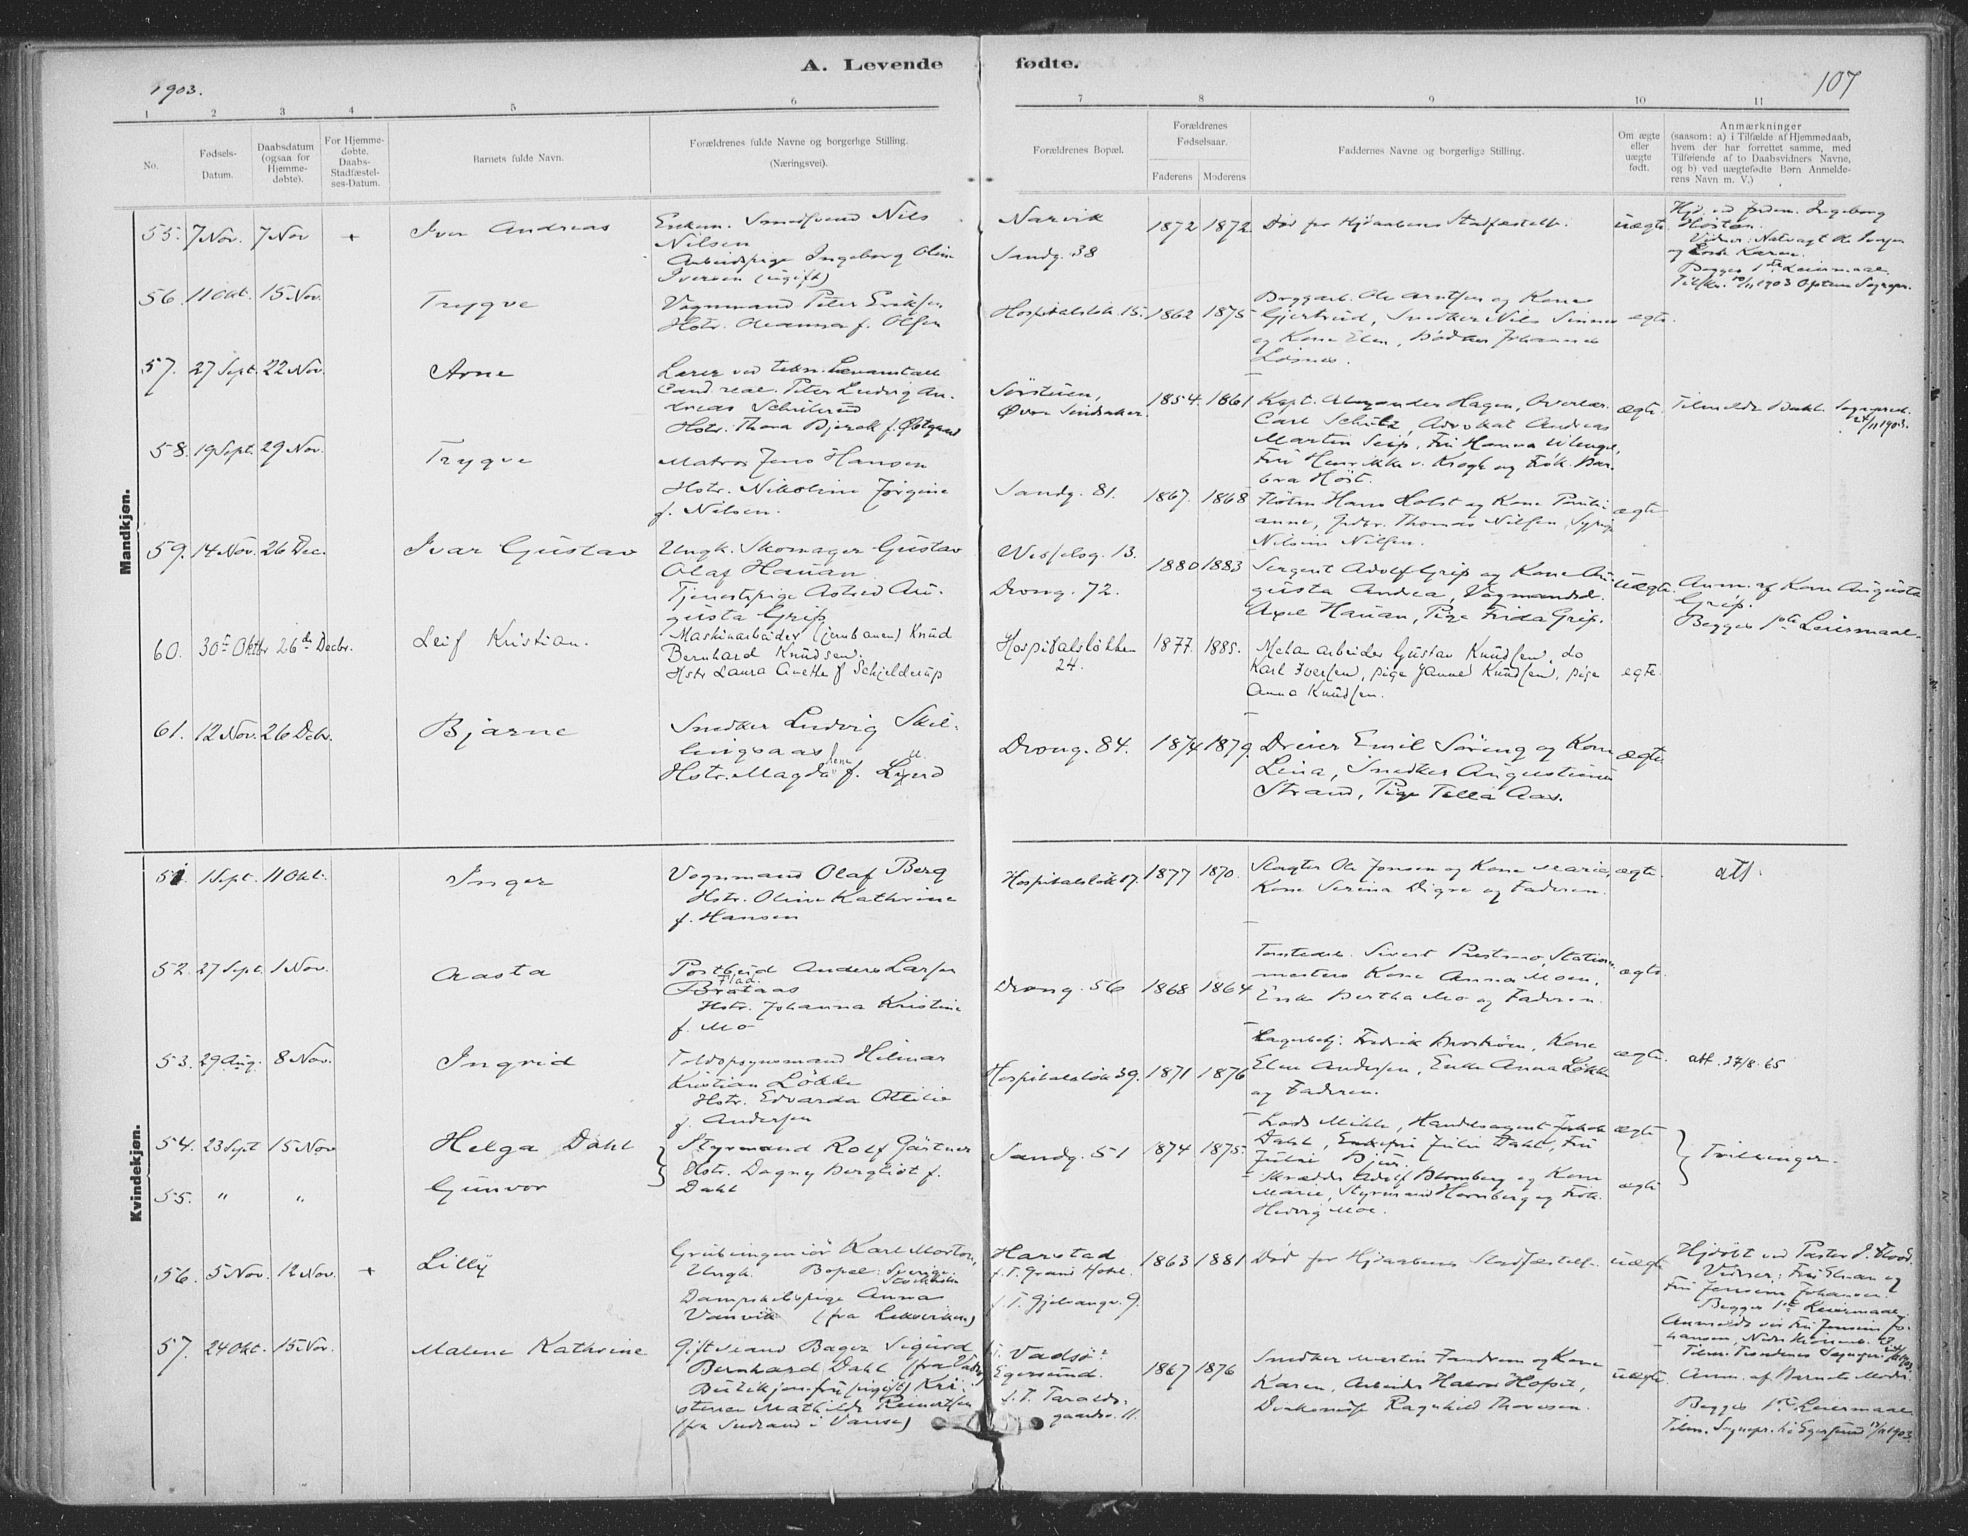 1903.
A. Levende fødte.
107
1 2 3 4 5 6 7 8 9 10 11
No.
Fødsels-
Datum.
Daabsdatum
(ogsaa for
Hjemme-
døbte).
For Hjemme-
døbte.
Daabs-
Stadfæstel-
ses-Datum.
Barnets fulde Navn.
Forældrenes fulde Navne og borgerlige Stilling.
(Næringsvei).
Forældrenes Bopæl.
Forældrenes
Fødselsaar.
Faderens Moderens
Faddernes Navne og borgerlige Stilling.
Om ægte
eller
uægte
født.
Anmærkninger
(saasom: a) i Tilfælde af Hjemmedaab,
hvem der har forrettet samme, med
Tilføiende af to Daabsvidners Navne,
og b) ved uægtefødte Børn Anmelde-
rens Navn m. V.)
Mandkjøn.
55. 7 Nov. 7 Nov + Iver Andreas
Enkem. Smedsvend Nils
Nilsen
Arbeidspige Ingeborg Oline
Iversen (ugift)
Narvik
Sandg. 38
1872 1872
Død før Hjdaabens Stadfæstelse.
uægte.
Hjd. ved Jordm. Ingeborg
Vidner: Natvagt Ole Iversen
Begges 1ste Leiermaal.
56. 11 Okt. 15 Nov. Trygve
Vognmand Peter Eriksen
Hstr. Oleanna f. Olsen
Hospitalsløk. 15. 1862 1875
Bryggearb. Ole Arntsen og Kone
Gjertrud, Snedker Nils
og Kone Elen, Bødker Johannes
ægte.
57. 27 Sept. 22 Nov. Arne
Lærer ved tekn. Læreanstalt
Cand. real. Peter Ludvig An-
dreas Schulerud
Hstr. Thora Bjerck f. Østgaard
Øvre
1854. 1861
Kapt. Alexander Hagen, Overlær.
Carl Schultz, Advokat Andreas
Martin Seip, Fru Hanna
Fru Henrikke v. Krogh og Frøk. Bar-
bra Høst.
ægte.
58. 19 Sept. 29 Nov. Trygve
Matros Jens Hansen
Hstr. Nikoline Jørgine
f. Nilsen.
Sandg. 81. 1867. 1868
Hans Holst og Kone Pauli-
anne, Thomas Nilsen,
Nilsine Nilsen.
ægte
59. 14 Nov. 26 Dec. Ivar Gustav
Ungk. Skomager Gustav
Olaf Hauan
Tjenestepige Astrid Au-
gusta Grip
Wesselsg. 13.
Drong. 72.
1880 1883
Sergent Adolf Grip og Kone Au-
gusta Andrea, Vognmand
Axel Hauan, Pige Frida Grip.
uægte.
Anm. af Kone Augusta
Grip.
Begges 1ste Leiermaal.
60. 30te Oktbr 26de Decbr. Leif Kristian.
Maskinarbeider (jernbanen) Knud
Bernhard Knudsen.
Hstr Laura Anette f Schjelderup
Hospitalsløkken
24.
1877. 1885.
Metalarbeider Gustav Knudsen, do
Karl Iversen, pige Janna Knudsen, pige
Anna Knudsen.
egte.
61. 12 Nov. 26 Decbr. Bjarne
Snedker Ludvig Skil-
lingsaas
Hstr. Magdalene f.
Drong. 84. 1874 1879.
Dreier Emil Søreng og Kone
Lina, Snedker Augustinus
Strand, Pige Tella Aas.
ægte
Kvindekjøn.
51. 1 Sept. 11 Okt. Inger
Vognmand Olaf Berg
Hstr. Oline Kathrine
f. Hansen
Hospitalsløk 17. 1877 1870.
Slagter Ole Jensen og Kone Marie,
Kone Serina Digre og Faderen.
ægte. att.
52. 27 Sept. 1 Nov. Aasta
Postbud Anders Larsen
Flad.
Brataas
Hstr. Johanna Kristine
f. Mo
Drong. 56 1868 1864
Sivert Prestmo, Station-
mesters Kone Anna Moen,
Enke Bertha Mo og Faderen.
ægte.
53. 29 Aug. 8 Nov. Ingrid
Toldopsynsmand Hilmar
Kristian Løkke
Hstr. Edvarda Otilie
f. Andersen
Hospitalsløk 39. 1871 1876
Lagerbetj. Fredrik Broström, Kone
Elen Andersen, Enke Anna Løkke
og Faderen.
ægte. att. 27/8. 65
54. 23 Sept 15 Nov Helga Dahl
Styrmand Rolf Gärtner
Hstr. Dagny Bergliot f.
Dahl
Sandg. 51 1874 1875
Lods Mikle, Handelsagent Jakob
Dahl, Enkefru Julie Dahl, Fru
Julie
ægte
Tvillinger.
55. " " Gunvor
Skrædder Adolf Blomberg og Kone
Marie, Styrmand Hornberg og Frøk.
Hedvig Moe.
ægte
56. 5 Nov. 12 Nov. + Lilly
Grubeingeniør Karl Morton,
Ungk. Bopæl: Sverige,
Stockholm
Dampskibspige Anna
Vanvik (fra Leksviken)
Harstad
f. T. Grand Hotel.
f. T. Gjelvangv. 9.
1863 1881
Død før Hjdaabens Stadfæstelse.
uægte
Hjdøbt ved Pastor
Vidner: Fru
Fru Jensine Johansen.
Begges 1ste Leiermaal.
Anmeldt ved Fru Jensine Jo-
hansen,
57. 24 Okt. 15 Nov. Malene Kathrine
Gift Mand Bager Sigurd
Bernhard Dahl (fra Vadsø)
Butikjomfru (ugift) Kri-
stense Mathilde Reinertsen
(fra Sudland i Vanse)
Vadsø?
Egersund.
f. T. Taralds-
gaardsv. 11.
1867 1876
Snedker Martin og Kone
Karen, Arbeider Halvor
Ragnhild Thoresen.
uægte.
Anm. af Barnets Moder.
Begges 1ste Leiermaal
Tilm. Sognepr. til Egersund 17/11 1903.